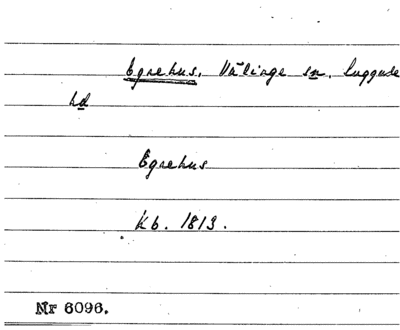 Egnehus. Välinge sn. Luggude
hd
Egnehus
Kb. 1813.
Nr 6096.